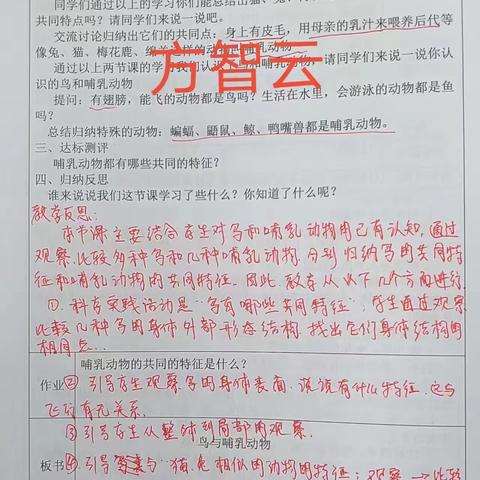 同学们通过以上的学习你们能总结出猫、兔、
共同特点吗？请同学们来说一说吧。
交流讨论归纳出它们的共同点：身上有皮毛，用母亲的乳汁来喂养后代等
像兔、猫、梅花鹿、绵羊这样的动物叫哺乳动物
通过以上两节课的学习我们认识了鸟和哺乳动物，请同学们来说一说你认
识的鸟和哺乳动物
提问：有翅膀，能飞的动物都是鸟吗？生活在水里，会游泳的动物都是鱼
吗？
总结归纳特殊的动物：蝙蝠、鼯鼠、鲸、鸭嘴兽都是哺乳动物。
方智云
三、达标测评
哺乳动物都有哪些共同的特征？
四、归纳反思
谁来说说我们这节课学习了些什么？你知道了什么呢？
教学反思：
本节课主要结合学生对鸟和哺乳动物的已有认知，通过
观察、比较多种鸟和几种哺乳动物，分别归纳鸟的共同特
征和哺乳动物的共同特征。因此，教学从以下几个方面进行：
①、科学实践活动是“鸟有哪些共同特征”，学生通过观察
比较几种鸟的身体外部形态结构，找出它们身体结构的
相同点..
哺乳动物的共同的特征是什么？
作业
②引导学生观察鸟的身体表面，说说有什么特征，这与
飞行有无关系.
③引导学生从整体到局部的观察.
鸟与哺乳动物
板书
④引导与“猫、兔相似的动物的特征；观察→比较